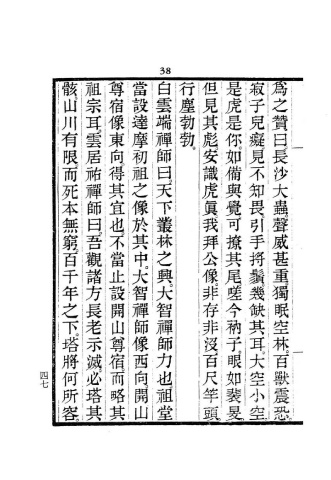 38
為之贊曰長沙大蟲聲威甚重獨眠空林百獸震恐
寂子兒癡見不知畏引手捋鬚幾缺其耳大空小空
是虎是你如備與覺可撩其尾嗟今衲子眼如裴旻
但見其彪安識虎真我拜公像非存非沒百尺竿頭
行塵勃勃
白雲端禪師曰天下叢林之興大智禪師力也祖堂
當設達摩初祖之像於其中大智禪師像西向開山
尊宿像東向得其宜也不當止設開山尊宿而略其
祖宗耳雲居祐禪師曰吾觀諸方長老示滅必塔其
骸山川有限而死本無窮百千年之下塔將何所容
四七